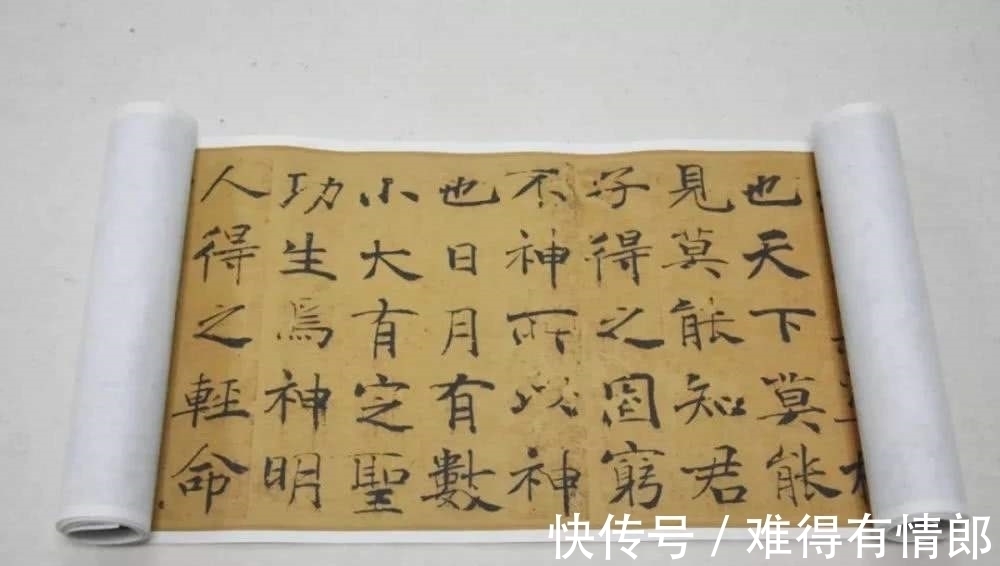 也天下莫能
見莫能知君
子得之固窮
不神所以神
也日月有數
小大有定聖
功生焉神明
人得之輕命
快传号 / 难得有情郎